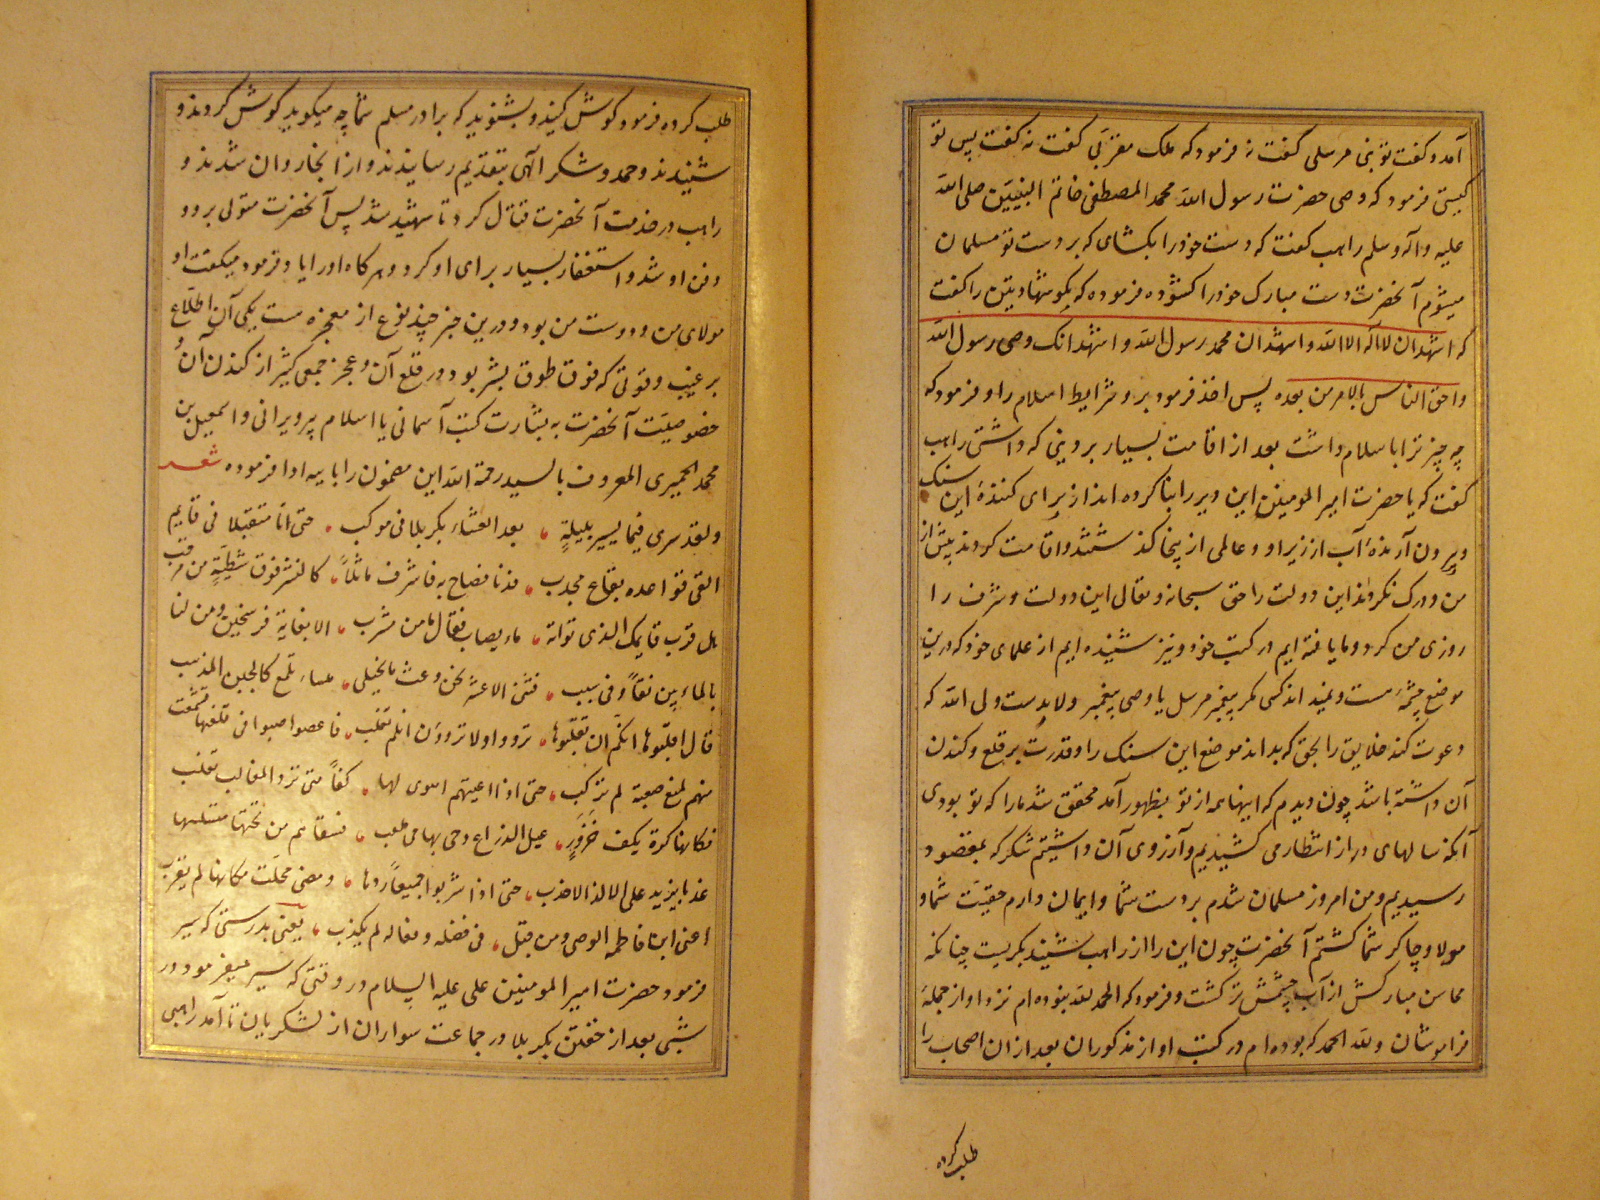 آمد و گفت تو نبی مرسلی گفت نه فرمود که ملک مقربی گفت نه گفت پس تو
کیستی فرمود که وصی حضرت رسول الله محمد المصطفی خاتم النبیین صلی الله
علیه و اله و سلم راهب گفت که دست خود را بکشای که بر دست تو مسلمان
میشوم آنحضرت دست مبارک خود را کشوده فرموده که بگو شهادتین را گفت
که اشهد ان لا اله الا الله و اشهد ان محمد رسول الله و اشهد انک وصی رسول الله
و احق الناس بالامر من بعده پس اخذ فرمود برو شرایط اسلام را و فرمود که
چه چیز ترا باسلام داشت بعد از اقامت بسیار بر دینی که داشتی راهب
گفت که یا حضرت امیر المومنین این دیر را بنا کرده اند از برای کننده این سنک
و بیرون آرنده آب از زیر او و عالمی از پیش از
من و درک نکردند این دولت را حق سبحانه و تعالی این دولت و شرف را
روزی من کرد و ما یافته ایم در کتب خود و نیز شنیده ایم از علمای خود که درین
موضع چشمه ست و نمیداند کسی مکر پیغمبر مرسل یا وصی پیغمبر و لابدست ولی الله که
دعوت کند خلایق را بحق که بداند موضع این سنک را و قدرت بر قلع و کندن
آن داشته باشد چون دیدم که اینها همه از تو بظهور آمد محقق شد ما را که تو بودی
آنکه سالهای دراز انتظار می کشیدیم و آرزوی آن داشتیم شکر که بمقصود
رسیدیم و من امروز مسلمان شدم بر دست شما و ایمان دارم حقیت شما و
مولا و چاکر شما کشتم آنحضرت چون این را از راهب شنید بکریست چنانکه
محاسن مبارکش از آب چشمش تر کشت و فرمود که الحمد لله نبوده ام نزد او از جمله
فراموشان و لله الحمد که بوده ام در کتب او از مذکوران بعد از ان اصحاب را
طلب کرده
طلب کرده فرمود کوش کنید و بشنوید که برادر مسلم شما چه میکوید کوش کردند و
شنیدند و حمد و شکر الهی بتقدیم رسانیدند و از انجا روان شدند و
راهب در خدمت آنحضرت قتال کرد تا شهید شد پس آنحضرت متولی بر و
دفن او شد و استغفار بسیار برای او کرد و هرکاه او را یاد فرمود میکفت او
مولای من و دوست من بود و درین خبر چند نوع از معجزه ست یکی آن اطلاع
بر غیب و قوتی که فوق طوق بشر بود در قلع آن و عجز جمعی کثیر از کندن آن و
خصوصیت آنحضرت به بشارت کتب آسمانی با اسلام و اسمعیل بن
محمد الحمیری المعروف بالسید رحمة الله این مضمون را بابیه ادا فرموده شعر
و لقد سری فیما یسیر بلیلةٍ بعد العشاء بکربلا فی موکب حتی اتا متبتلا فی قایم
القی قواعده بقاع مجدب فدنا فصاح به فاشرف ماثلاً کالنسر فوق شظیةٍ من مرقب
هل قرب قایمک الذی توائه ماء یصاب فقال ما من مشرب الا بغایة فرسخین و من لنا
بالماء بین نقاً و فی سبب فثنی الاعنة نحو وعث ملساء تلمع کاللجین المذهب
قال اقلبوها انکم ان تقلبوها ترووا و لا تروون ان لم تقلب فاعصوصبوا فی قلعها فتمنعت
منهم تمنع صعبة لم ترکب حتی اذا اعیتهم اهوی لها کفاً متی ترد المغالب تغلب
فکانها کرة بکف حزورٍ عبل الذراع دحی بها فی ملعب فسقاهم من تحتها متسلسلا
عذبا یزید علی الالذ الاعذب حتی اذا شربوا جمیعاً ردها و مضی فخلت مکانها لم یقرب
اعنی ابن فاطمه الوصی و من یقل فی فضله و فعاله لم یکذب یعنی بدرستی که سیر
فرمود حضرت امیر المومنین علی علیه السلام در وقتی که سیر میفرمود در
شبی بعد از خفتن بکربلا در جماعت سواران از لشکریان تا آمد راهبی